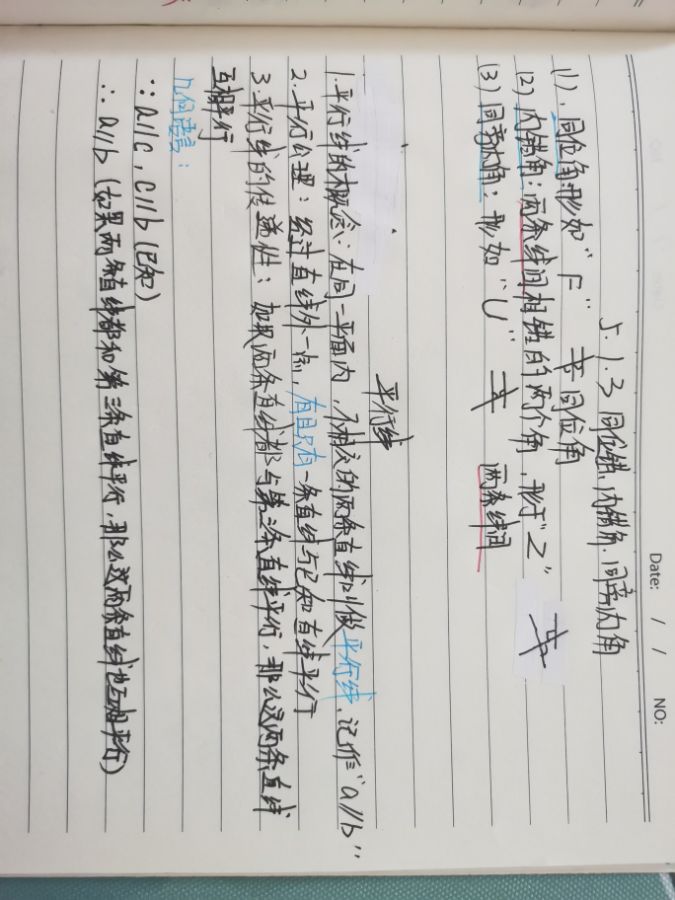 Date: / / NO:
5.1.3 同位错、内错角、同旁内角
(1)、同位角形如"F" 同位角
(2) 内错角:两条线间相错的两个角,形于"Z"
(3) 同旁内角:形如"U" 两条线间
平行线
1.平行线的概念:在同一平面内,不相交的两条直线叫做平行线,记作"a//b"
2.平行公理:经过直线外一点,有且只有一条直线与已知直线平行
3.平行线的传递性:如果两条直线都与第三条直线平行,那么这两条直线
互相平行
几何语言:
∵ a//c,c//b(已知)
∴ a//b(如果两条直线都和第三条直线平行,那么这两条直线也互相平行)